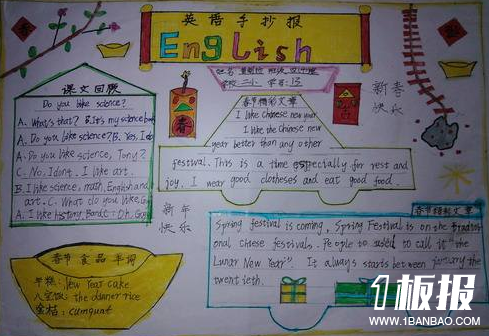 英语手抄报
English
姓名 班级
学校 二小 学号: 13
课文回顾
Do you like science?
A. What's that? B. It's my science book
A. Do you like science? B. Yes, I do
A. Do you like science, Tony?
C. No. I don't. I like art.
B. I like science, math, English and
art. C. What do you like
A. I like history. B and C: Oh.
春节精彩文章
I like Chinese new year
I like the Chinese new
year better than any other
festival. This is a time especially for rest and
joy. I wear good clotheses and eat good food.
新春
快乐
春
新年
快乐
春节精彩文章
Spring festival is coming, Spring Festival is on the tradition
onal Chese festivals. People to used to call it "the
Lunar New Year". It always starts between january the
twentieth.
春节食品单词
年糕: New Year cake
八宝饭: the dinner rice
金桔: cumquat
1板报
WWW.1BANBAO.COM